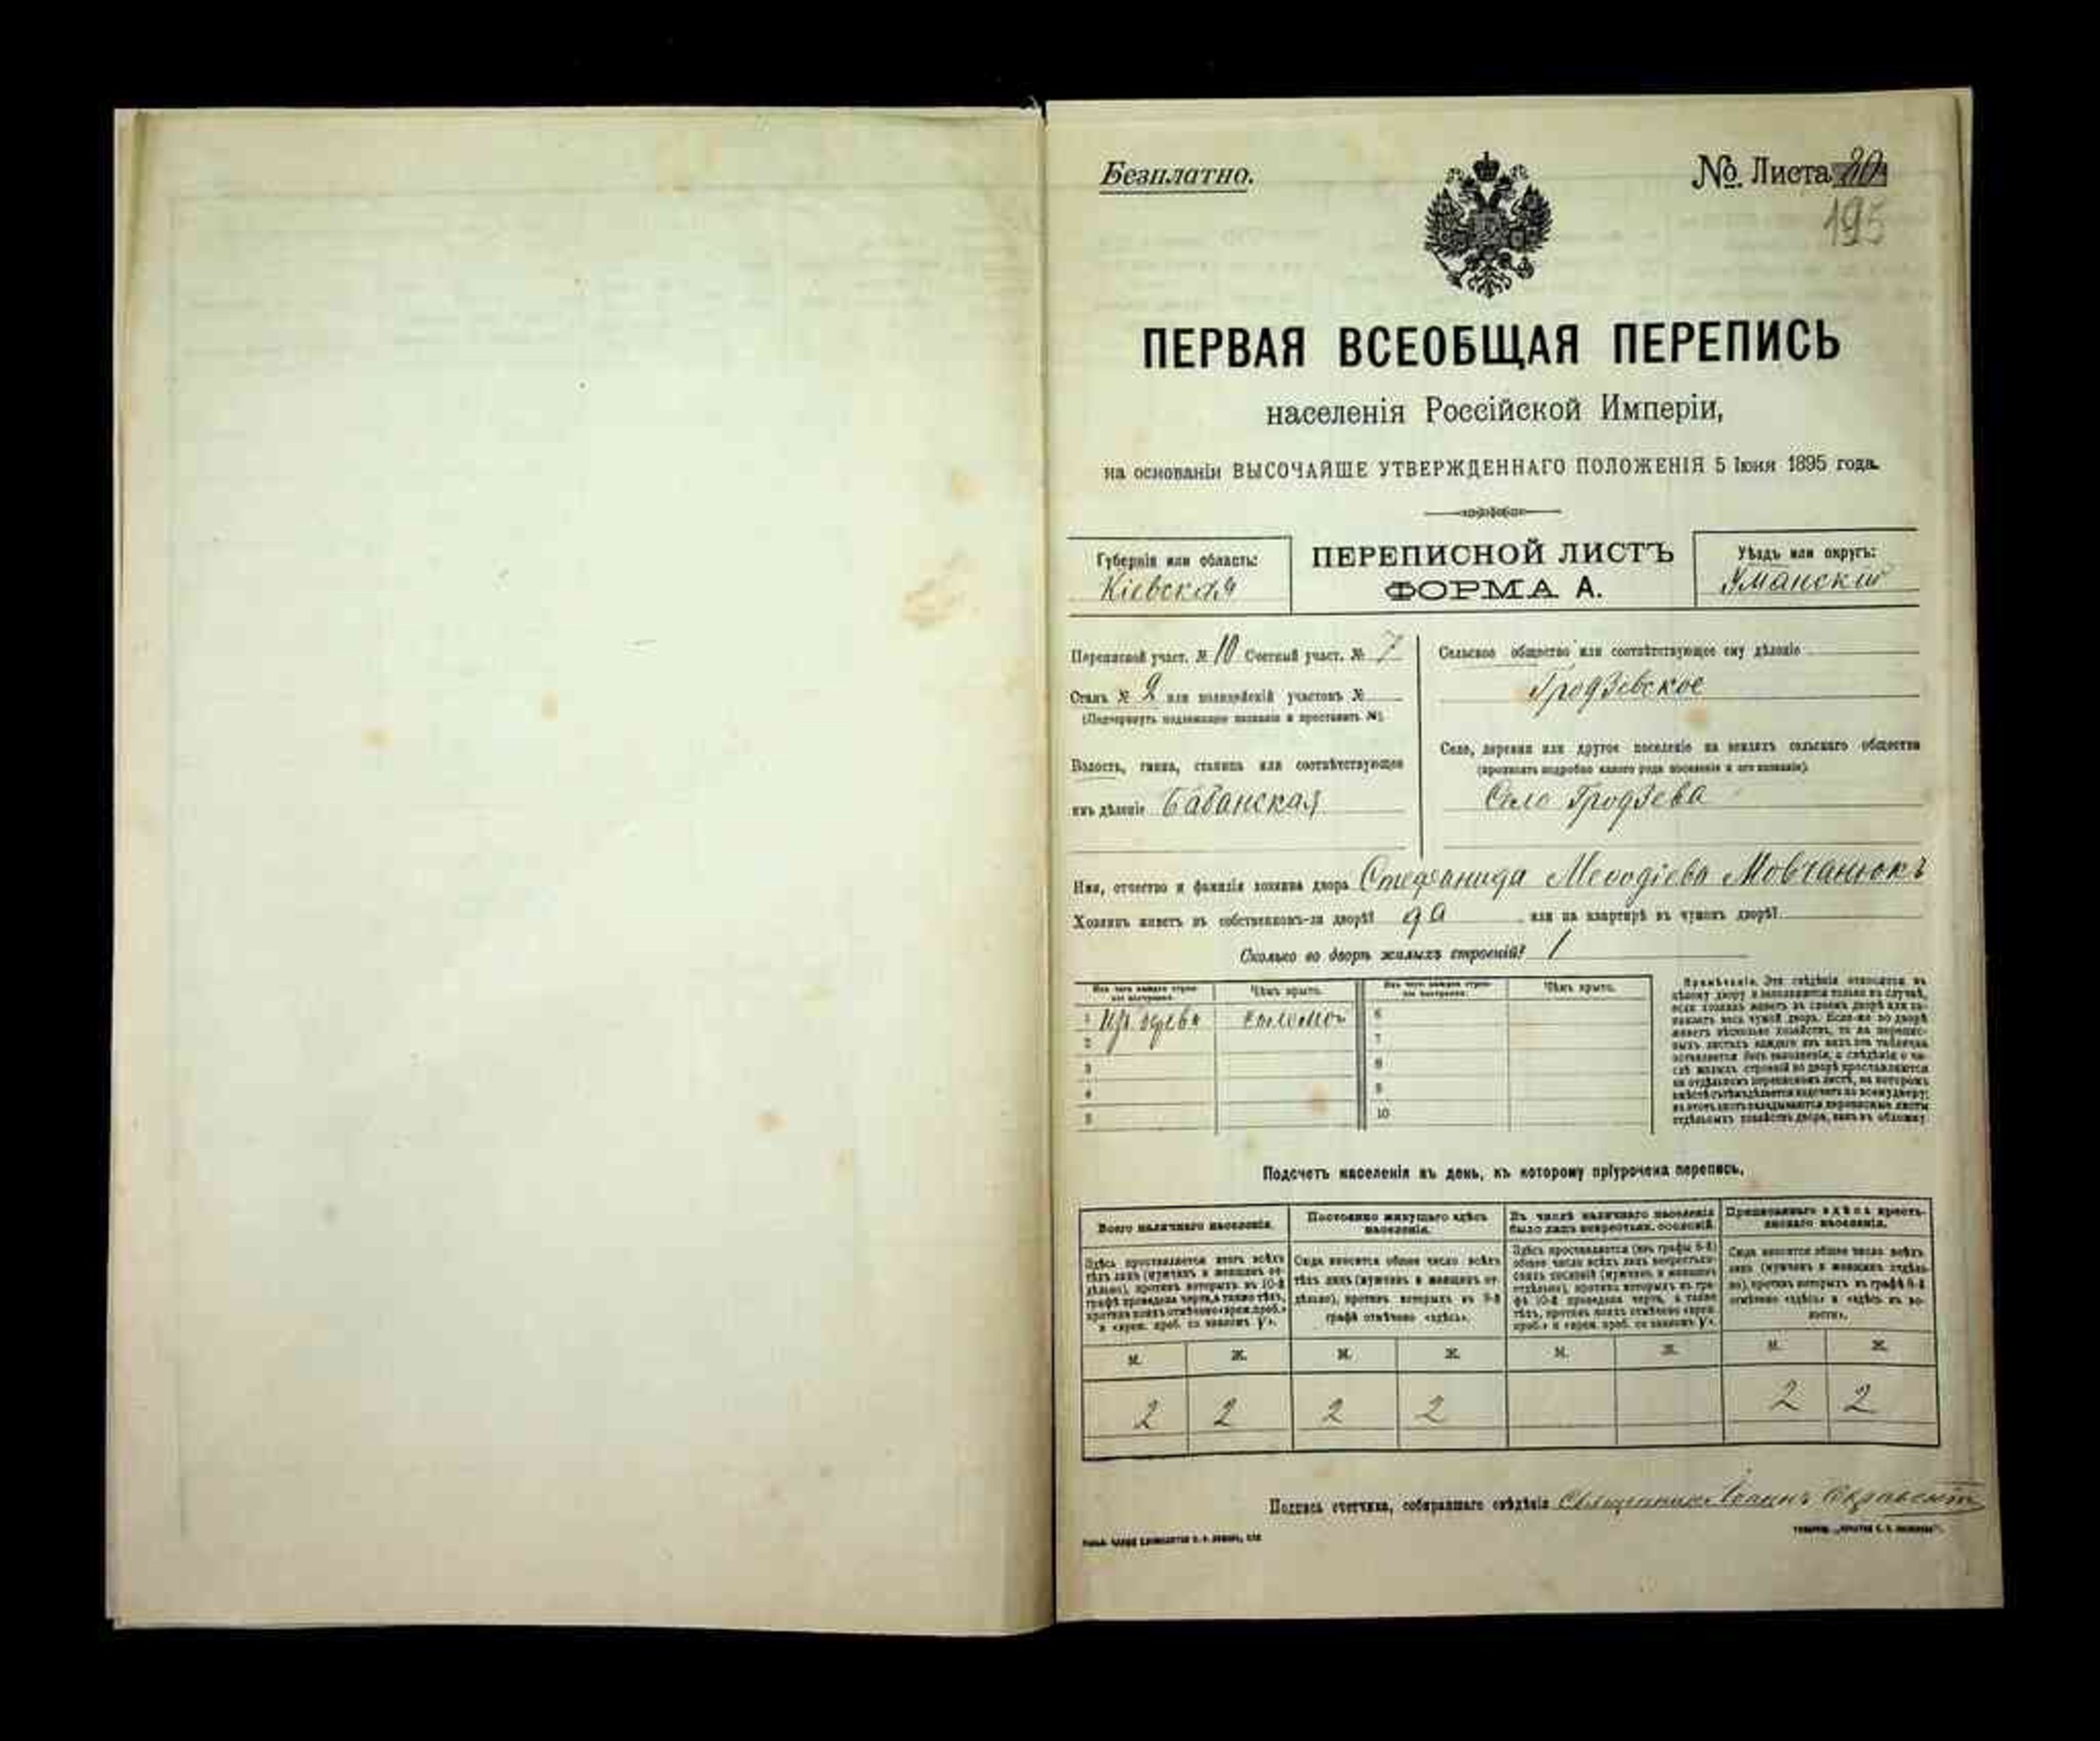 Безплатно.
№ Листа
195
ПЕРВАЯ ВСЕОБЩАЯ ПЕРЕПИСЬ
населенія Россійской Имперіи,
на основаніи ВЫСОЧАЙШЕ УТВЕРЖДЕННАГО ПОЛОЖЕНІЯ 5 Іюня 1895 года.
Губернія или область:
Кіевская
ПЕРЕПИСНОЙ ЛИСТЪ
ФОРМА А.
Уѣздъ или округъ:
Уманскій
Переписной участ. № 10 Счетный участ. № 7
Станъ № 2 или полицейскій участокъ №
(Подчеркнуть подлежащее названіе и проставить №).
Волость, гмина, станица или соотвѣтствующее
имъ дѣленіе Бабанская
Сельское общество или соотвѣтствующее ему дѣленіе
Гродзевское
Село, деревня или другое поселеніе на земляхъ сельскаго общества
(прописать подробно какого рода поселеніе и его названіе).
Село Гродзева
Имя, отчество и фамилія хозяина двора Стефанида Меѳодіева Мовчанюкъ
Хозяинъ живетъ въ собственномъ-ли дворѣ? да или на квартирѣ въ чужомъ дворѣ?
Сколько во дворѣ жилыхъ строеній? 1
Изъ чего каждое строе-
ніе построено.
Чѣмъ крыто.
Изъ чего каждое строе-
ніе построено.
Чѣмъ крыто.
1 Изъ дерева соломой 6
2 7
3 8
4 9
5 10
Примѣчаніе. Эти свѣдѣнія относятся къ
цѣлому двору и заполняются только въ случаѣ,
если хозяинъ живетъ въ своемъ дворѣ или за-
нимаетъ весь чужой дворъ. Если-же во дворѣ
живетъ нѣсколько хозяйствъ, то на перепис-
ныхъ листахъ каждаго изъ нихъ эта табличка
оставляется безъ заполненія, а свѣдѣнія о чи-
слѣ жилыхъ строеній во дворѣ проставляются
на отдѣльномъ переписномъ листѣ, на которомъ
вмѣстѣ съ тѣмъ дѣлается подсчетъ по всему двору;
въ этотъ листъ вкладываются переписные листы
отдѣльныхъ хозяйствъ двора, какъ въ обложку.
Подсчетъ населенія въ день, къ которому пріурочена перепись.
Всего наличнаго населенія.
Постоянно живущаго здѣсь
населенія.
Въ числѣ наличнаго населенія
было лицъ некрестьян. сословій.
Приписаннаго здѣсь кресть-
янскаго населенія.
Здѣсь проставляется итогъ всѣхъ
тѣхъ лицъ (мужчинъ и женщинъ от-
дѣльно), противъ которыхъ въ 10-й
графѣ проведена черта, а также тѣхъ,
противъ коихъ отмѣчено «врем. проб.»
и «врем. проб. со знакомъ V».
Сюда вносится общее число всѣхъ
тѣхъ лицъ (мужчинъ и женщинъ от-
дѣльно), противъ которыхъ въ 9-й
графѣ отмѣчено «здѣсь».
Здѣсь проставляется (изъ графы 6-й)
общее число всѣхъ лицъ некрестьян-
скихъ сословій (мужчинъ и женщинъ
отдѣльно), противъ которыхъ въ гра-
фѣ 10-й проведена черта, а также
тѣхъ, противъ коихъ отмѣчено «врем.
проб.» и «врем. проб. со знакомъ V».
Сюда вносится общее число всѣхъ
лицъ (мужчинъ и женщинъ отдѣль-
но), противъ которыхъ въ графѣ 8-й
отмѣчено «здѣсь» и «здѣсь въ во-
лости».
М. Ж. М. Ж. М. Ж. М. Ж.
2 2 2 2 2 2
Подпись счетчика, собиравшаго свѣдѣнія Священникъ Іоаннъ